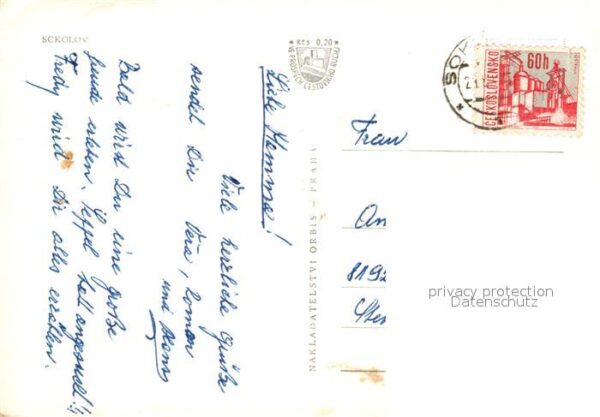 SOKOLOV
Kčs 0,20
VE PROSPĚCH CESTOVNÍHO RUCHU
NAKLADATELSTVÍ ORBIS – PRAHA
60h
ČESKOSLOVENSKO
SOK
Liebe Hemma!
Viele herzliche Grüße
sendet Dir Vera, Roman
und
Bald wird Du eine große
Freude erleben.
Fredy wird Dir alles erzählen.
Frau
An
8192
privacy protection
Datenschutz